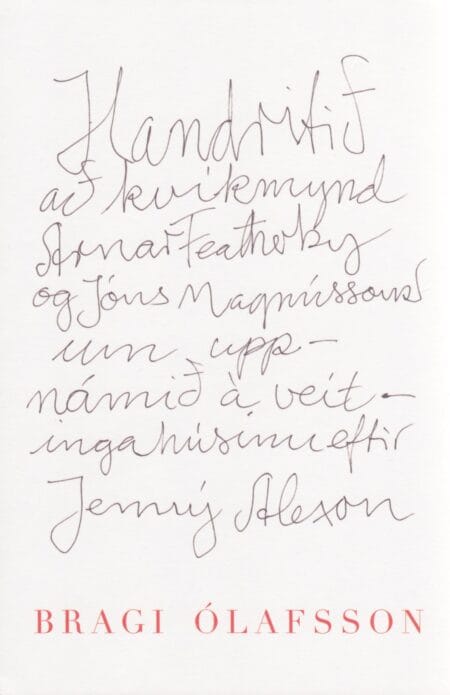 Handritið
að kvikmynd
Arnar Featherby
og Jóns Magnússonar
um upp-
námið á veit-
ingahúsinu eftir
Jenný Alexon
BRAGI ÓLAFSSON